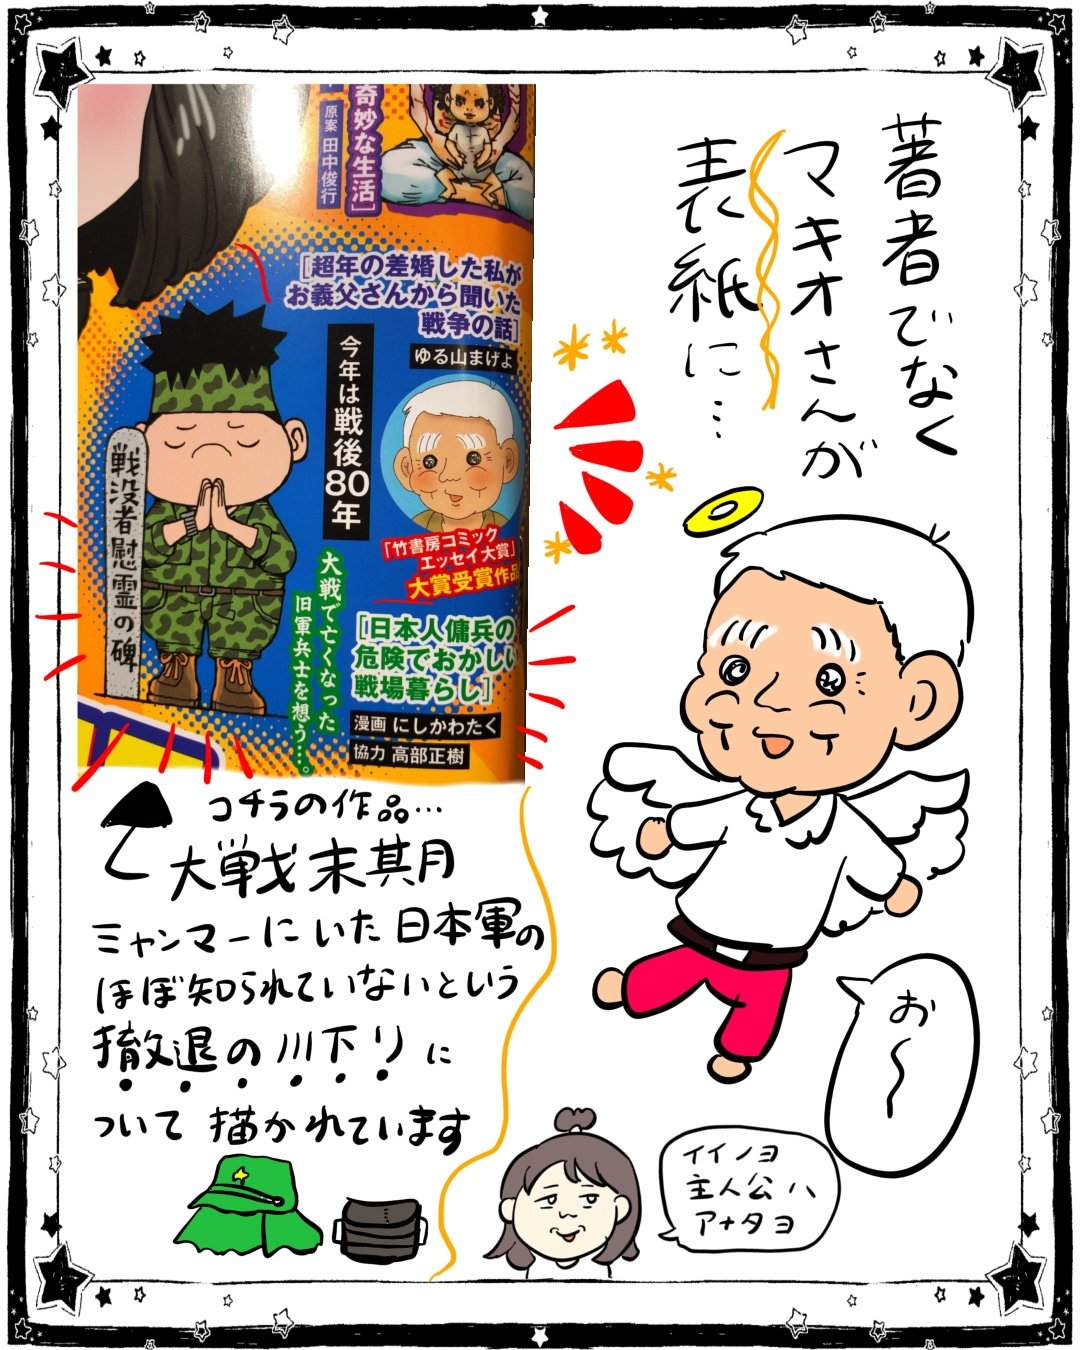 著者でなく
マキオさんが
表紙に…
奇妙な生活]
原案 田中俊行
[超年の差婚した私が
お義父さんから聞いた
戦争の話]
ゆる山まげよ
今年は戦後80年
「竹書房コミック
エッセイ大賞」
大賞受賞作品
戦没者慰霊の碑
大戦で亡くなった
旧軍兵士を想う…。
[日本人傭兵の
危険でおかしい
戦場暮らし]
漫画 にしかわたく
協力 高部正樹
コチラの作品…
大戦末期
ミャンマーにいた日本軍の
ほぼ知られていないという
撤退の川下りに
ついて描かれています
お〜〜
イイノヨ
主人公ハ
アナタヨ